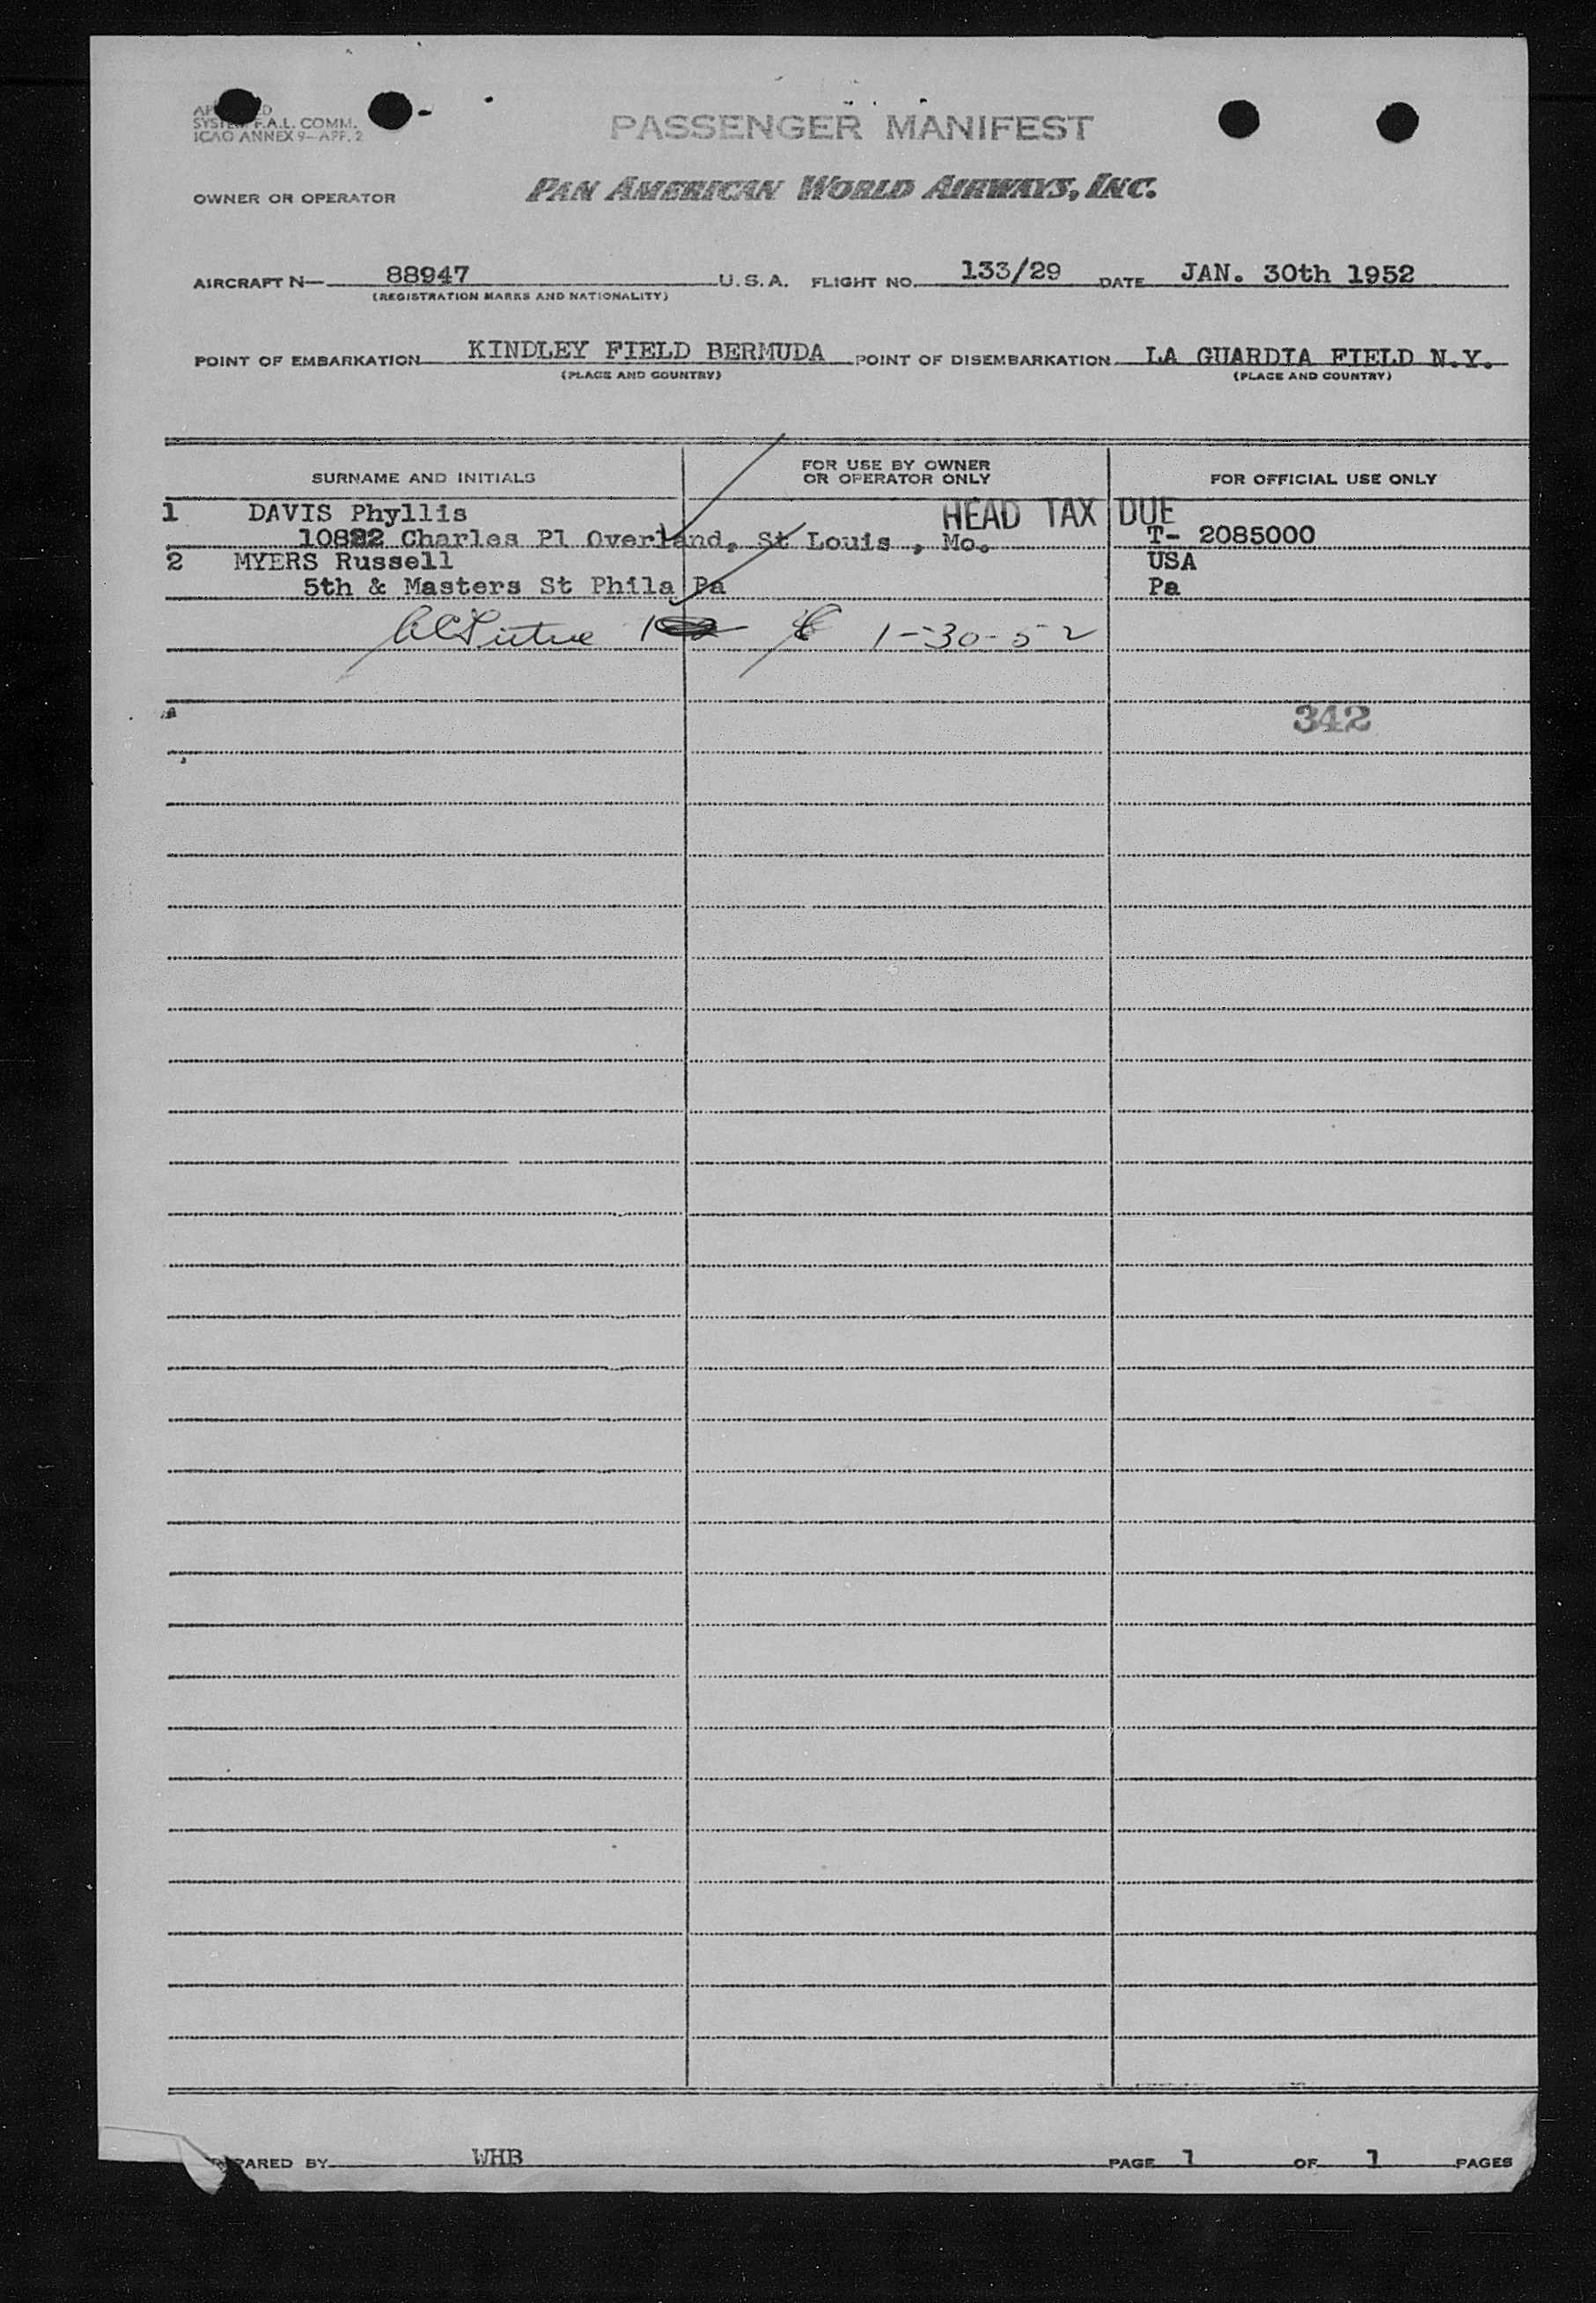 PASSENGER MANIFEST
SYSTEM F.A.L. COMM.
ICAO ANNEX 9—APP. 2
OWNER OR OPERATOR PAN AMERICAN WORLD AIRWAYS, INC.
AIRCRAFT N— 88947 U.S.A. FLIGHT NO. 133/29 DATE JAN. 30th 1952
(REGISTRATION MARKS AND NATIONALITY)
POINT OF EMBARKATION KINDLEY FIELD BERMUDA POINT OF DISEMBARKATION LA GUARDIA FIELD N.Y.
(PLACE AND COUNTRY) (PLACE AND COUNTRY)
SURNAME AND INITIALS FOR USE BY OWNER OR OPERATOR ONLY FOR OFFICIAL USE ONLY
1 DAVIS Phyllis HEAD TAX DUE
Charles Pl Overland, St Louis , Mo. T- 2085000
2 MYERS Russell USA
5th & Masters St Phila Pa Pa
1-30-52
342
PREPARED BY WHB PAGE 1 OF 1 PAGES